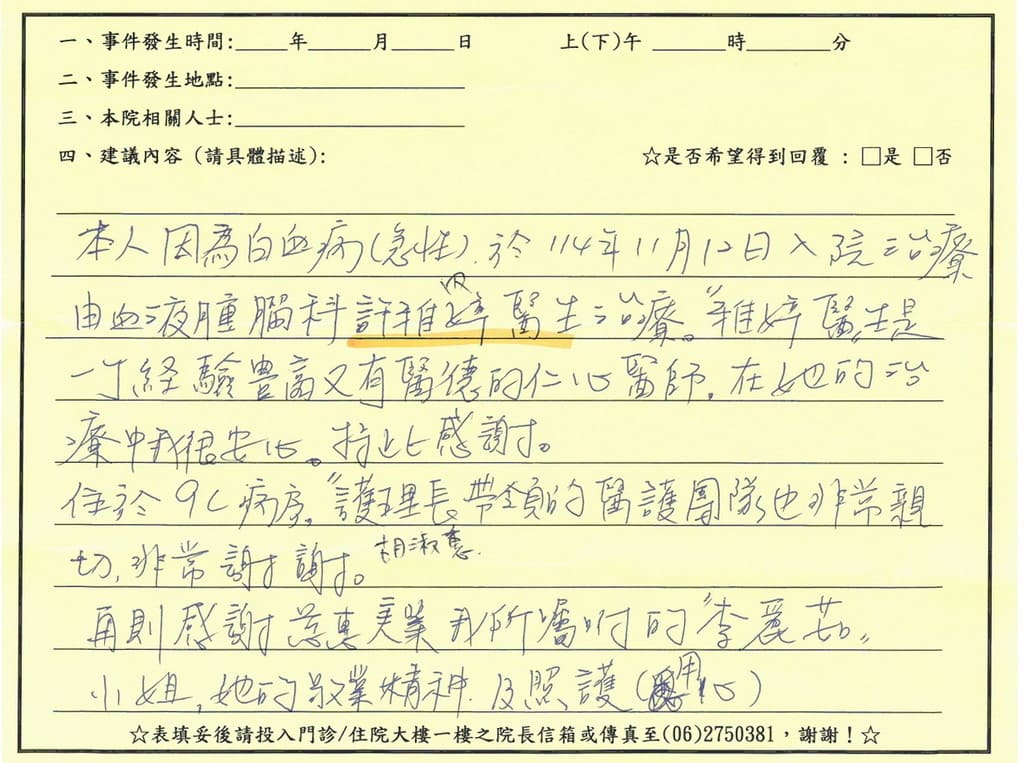 一、事件發生時間:_____年_____月_____日 上(下)午 _____時_____分
二、事件發生地點:_____
三、本院相關人士:_____
四、建議內容（請具體描述）: ☆是否希望得到回覆：□是 □否
本人因為白血病(急性).於114年11月12日入院治療
由血液腫腦科許雅婷醫生治療。"雅婷醫生是
一寸経驗豊富又有醫德的仁心醫師.在她的治
療中我很安心。持此感謝。
住於9C病房。"護理長帶領的醫護團隊也非常親
胡淑惠.
切,非常謝謝。
再則感謝慈惠 我所囑咐的"李麗茹"
小姐,她的敬業精神.及照護(用心)
☆表填妥後請投入門診/住院大樓一樓之院長信箱或傳真至(06)2750381，謝謝！☆